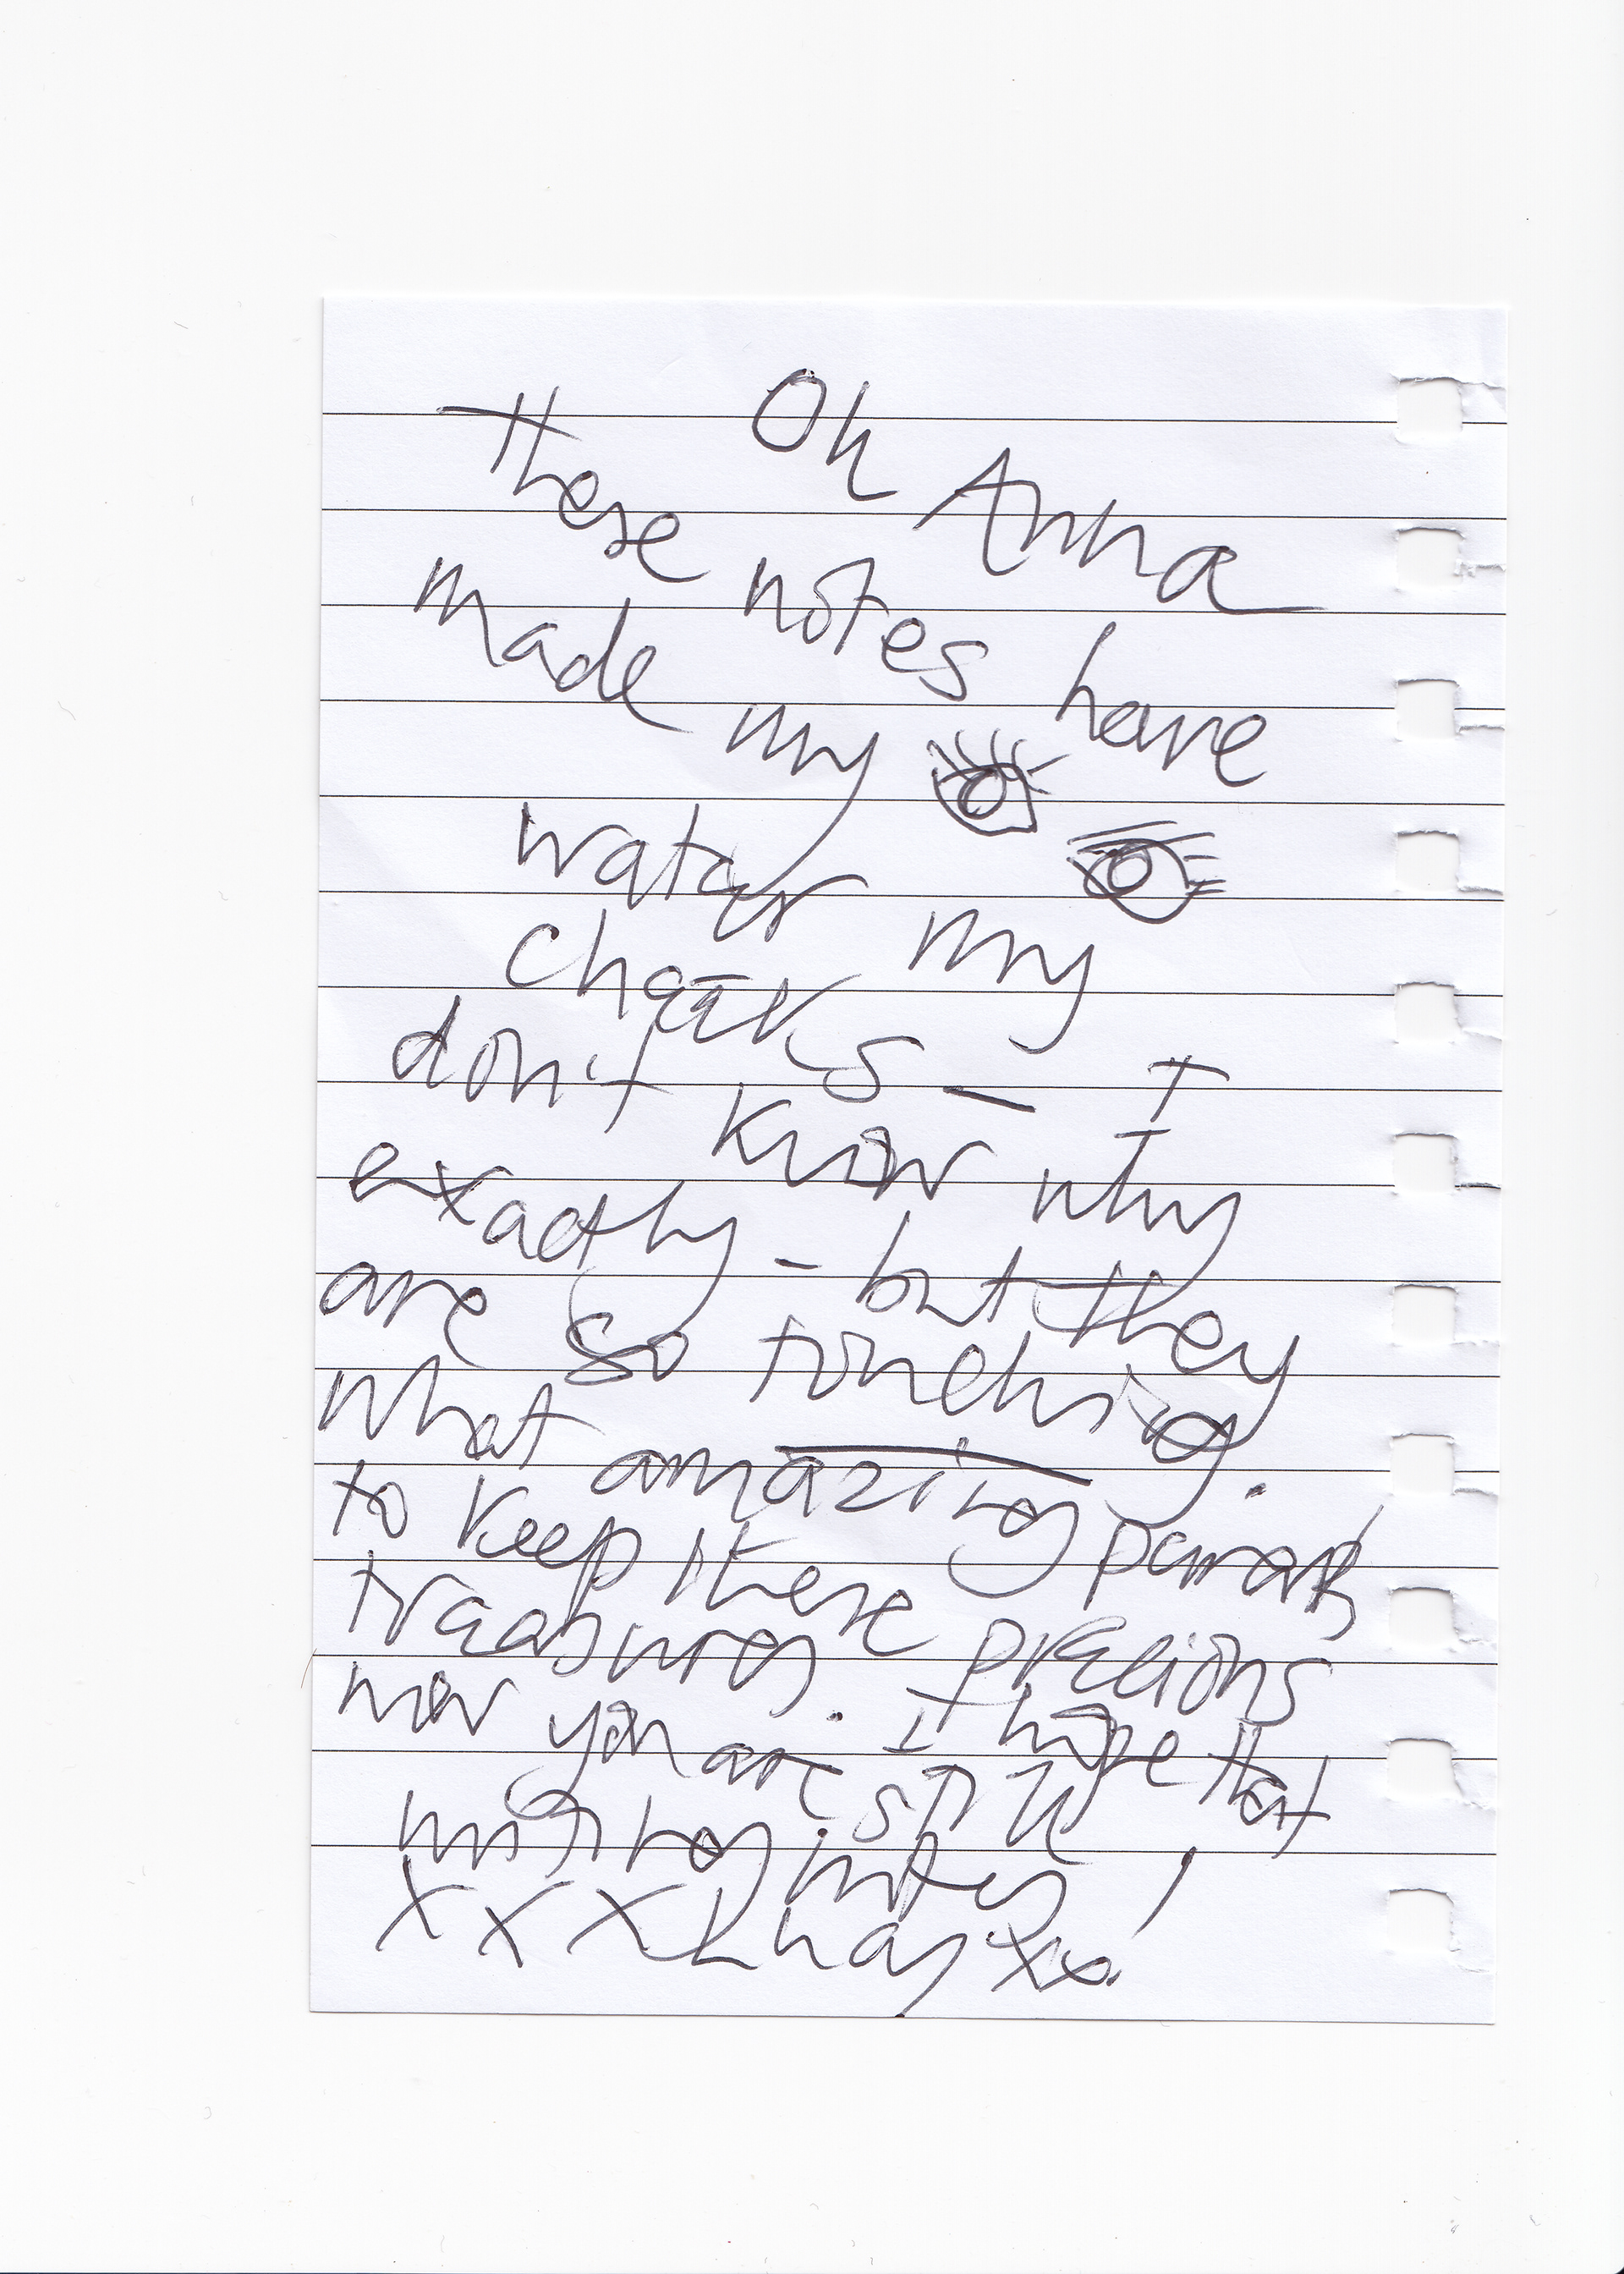 Oh Anna
these notes have
made my
water my
cheeks – I
don't know why
exactly – but they
are so touching.
What amazing parents
to keep these precious
treasures. I hope that
now you are still
writing notes!
xxx xx